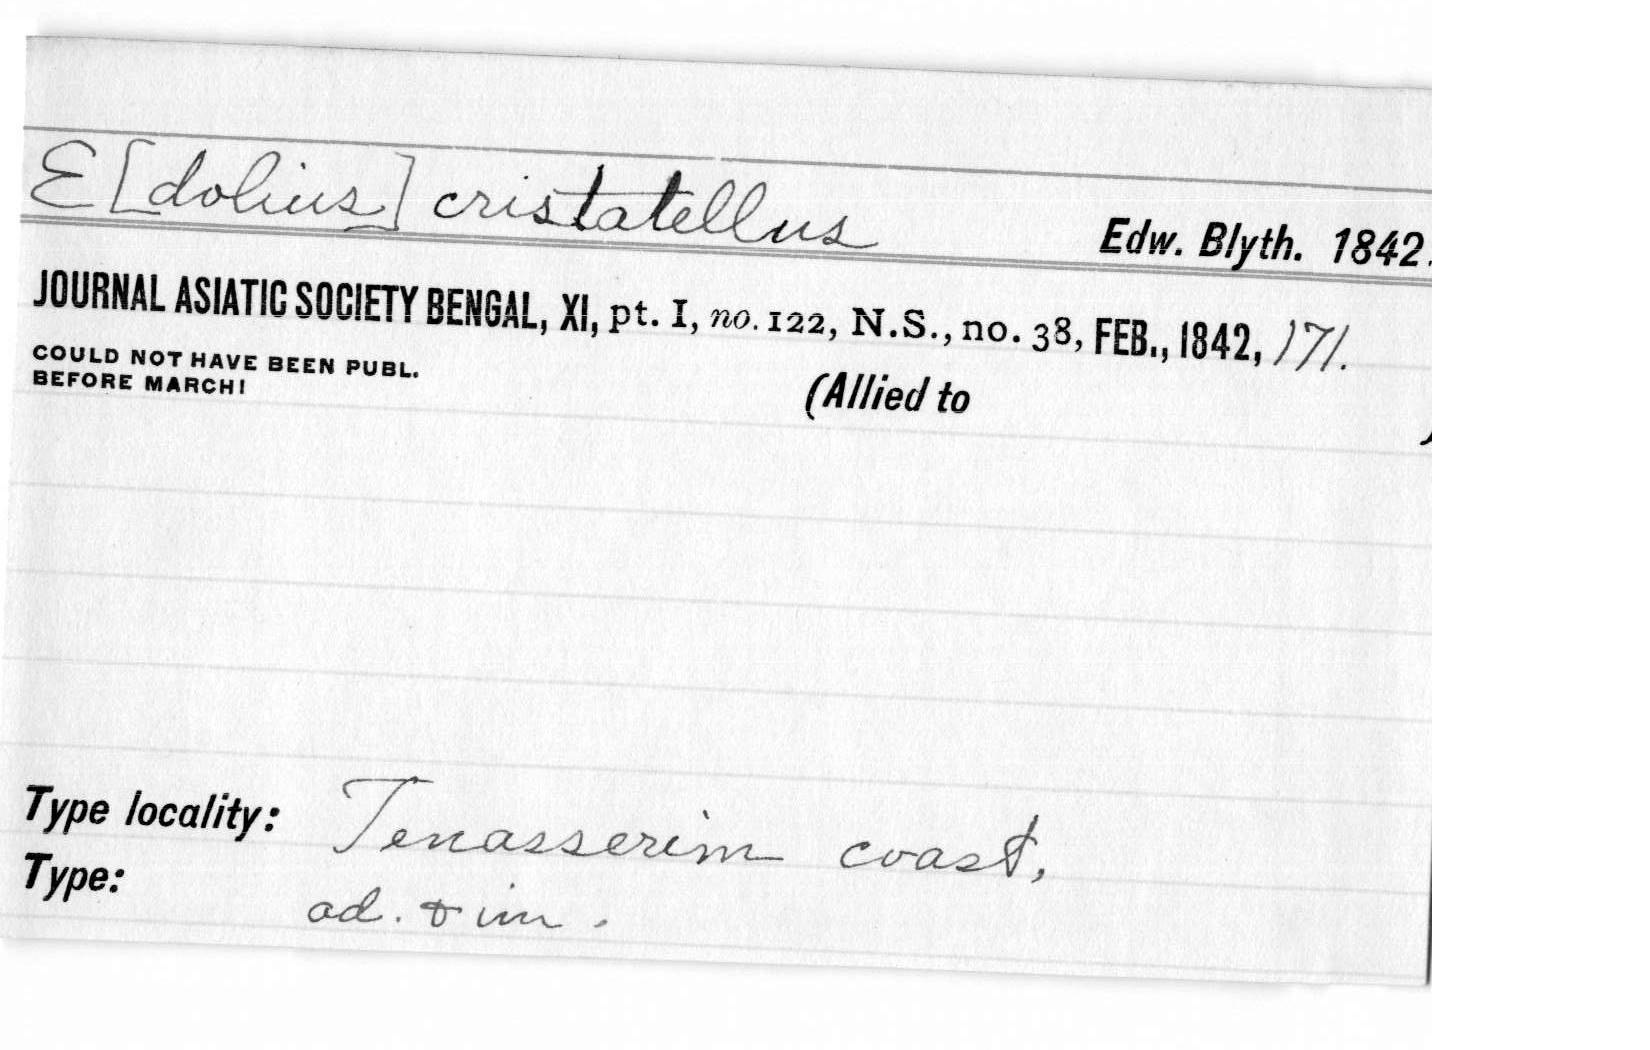 E[dolius] cristatellus Edw. Blyth. 1842.
JOURNAL ASIATIC SOCIETY BENGAL, XI, pt. I, no. 122, N.S., no. 38, FEB., 1842, 171.
COULD NOT HAVE BEEN PUBL.
BEFORE MARCH!
(Allied to )
Type locality: Tenasserim coast,
Type: ad. & im.